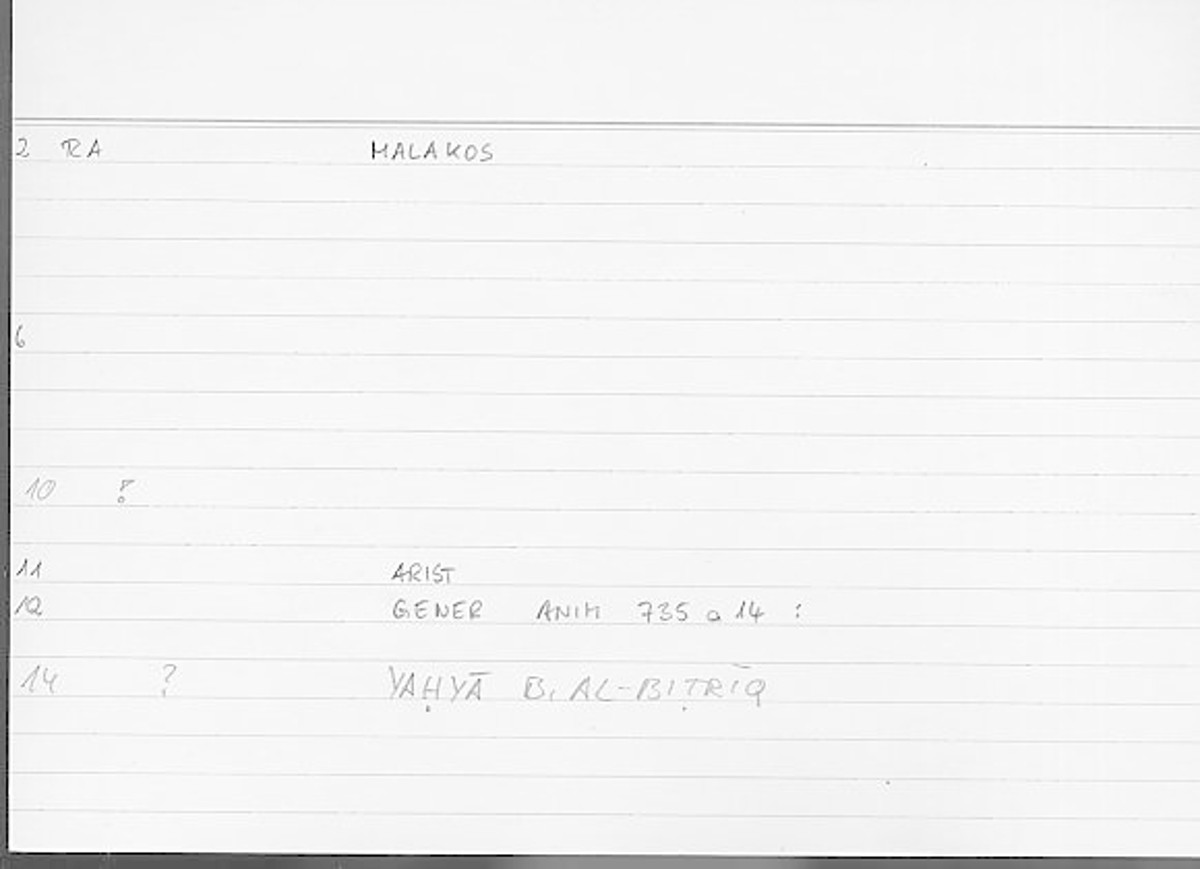 2 RA MALAKOS
6
10 ?
11 ARIST
12 GENER ANIM 735 a 14 :
14 ? YAḤYĀ B. AL-BIṬRĪQ